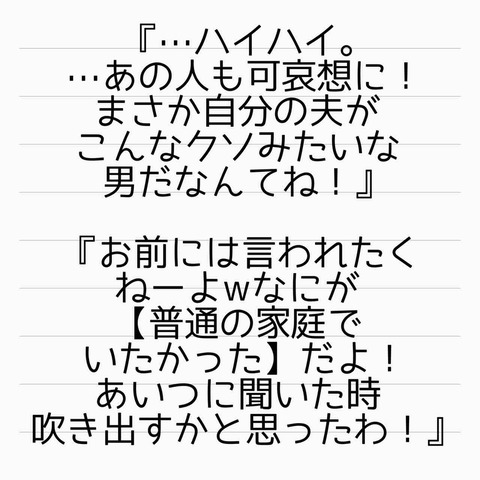 『…ハイハイ。
…あの人も可哀想に！
まさか自分の夫が
こんなクソみたいな
男だなんてね！』
『お前には言われたく
ねーよwなにが
【普通の家庭で
いたかった】だよ！
あいつに聞いた時
吹き出すかと思ったわ！』